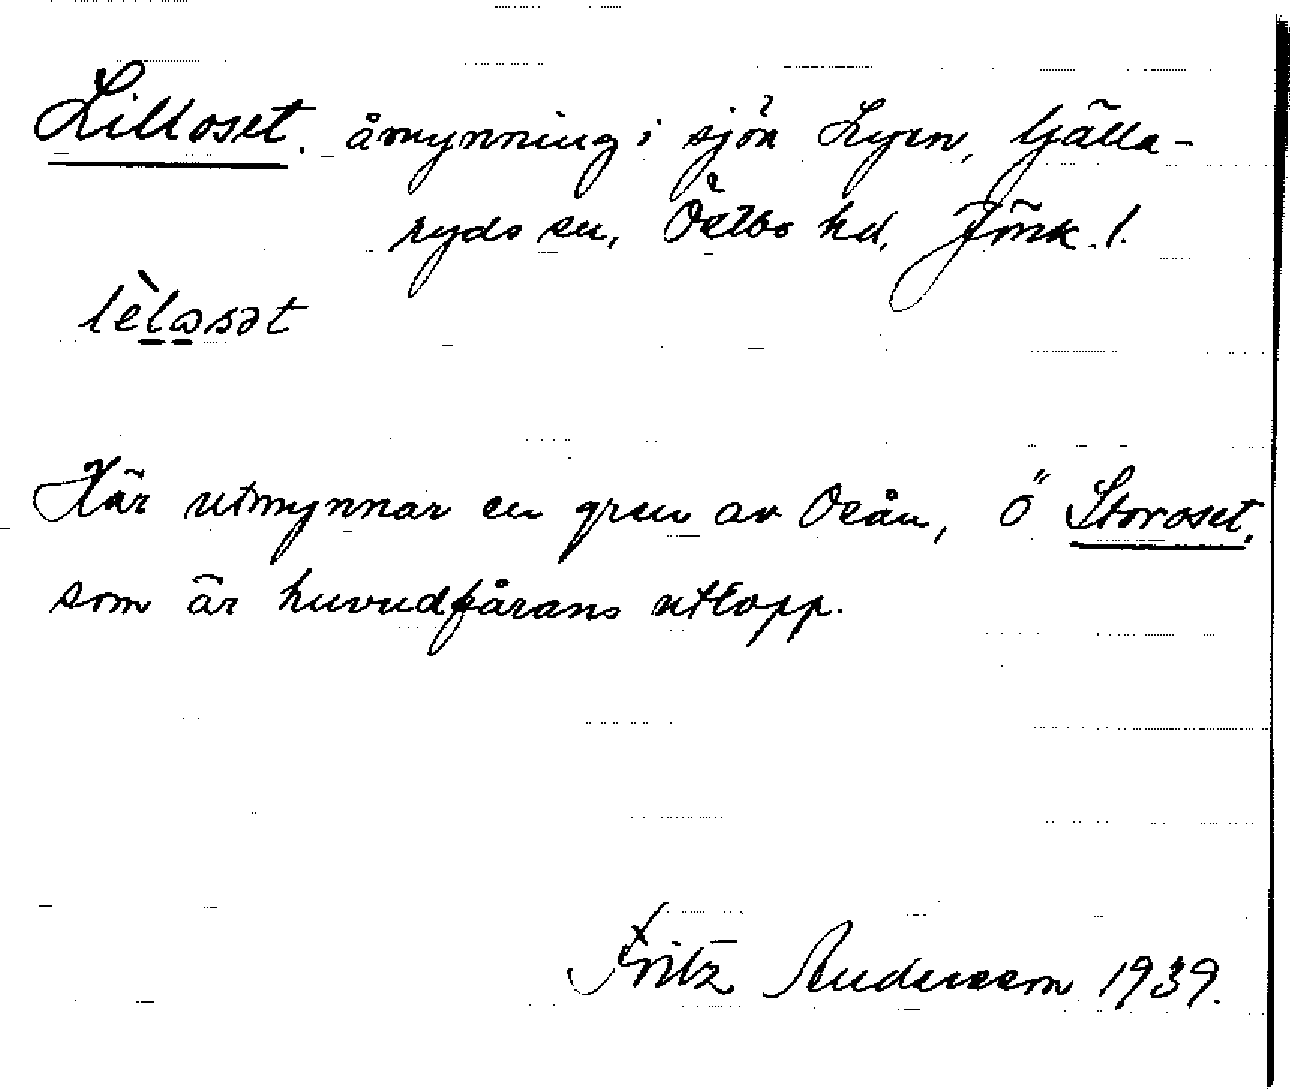 Lilloset. åmynning i sjön Lyen, Gälla-
ryds sn, Östbo hd, Jönk. l.
lèlɷsət
Här utmynnar en gren av Osån, ö Storoset,
som är huvudfårans utlopp.
Fritz Andersson 1939.